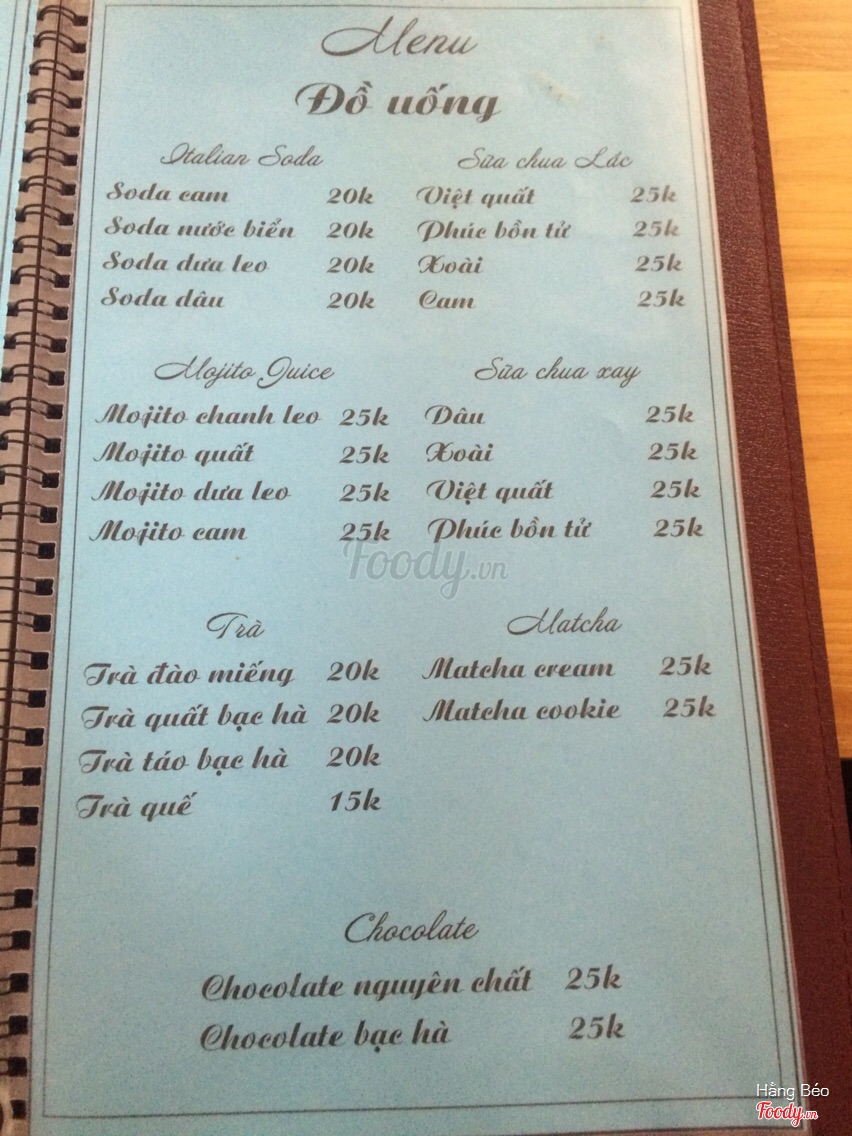 Menu
Đồ uống
Italian Soda
Soda cam 20k
Soda nước biển 20k
Soda dưa leo 20k
Soda dâu 20k
Sữa chua Lắc
Việt quất 25k
Phúc bồn tử 25k
Xoài 25k
Cam 25k
Mojito Juice
Mojito chanh leo 25k
Mojito quất 25k
Mojito dưa leo 25k
Mojito cam 25k
Sữa chua xay
Dâu 25k
Xoài 25k
Việt quất 25k
Phúc bồn tử 25k
Foody.vn
Trà
Trà đào miếng 20k
Trà quất bạc hà 20k
Trà táo bạc hà 20k
Trà quế 15k
Matcha
Matcha cream 25k
Matcha cookie 25k
Chocolate
Chocolate nguyên chất 25k
Chocolate bạc hà 25k
Hằng Béo
Foody.vn